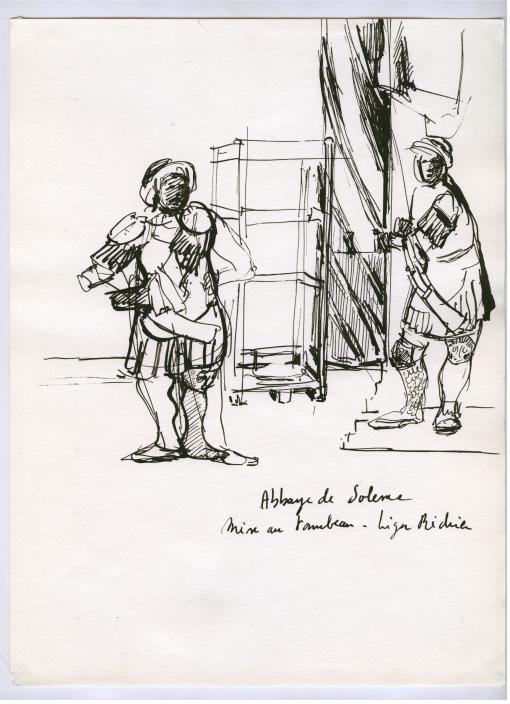 Abbaye de Solesme
Mise au Tombeau - Ligier Richier